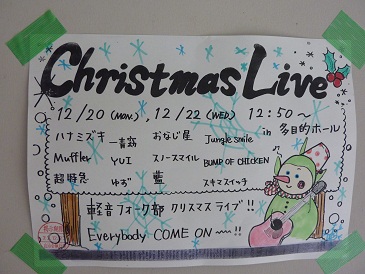 Christmas Live
12/20 (MON.), 12/22 (WED) 12:50～
ハナミズキ 一青窈 おなじ星 Jungle smile in 多目的ホール
Muffler YUI スノースマイル BUMP OF CHICKEN
超特急 ゆず 藍 スキマスイッチ
軽音フォーク部 クリスマスライブ!!
Everybody COME ON ～!!